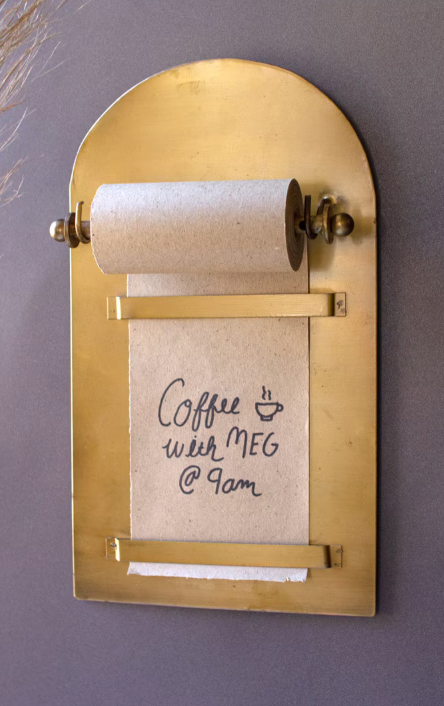 Coffee
with MEG
@ 9am